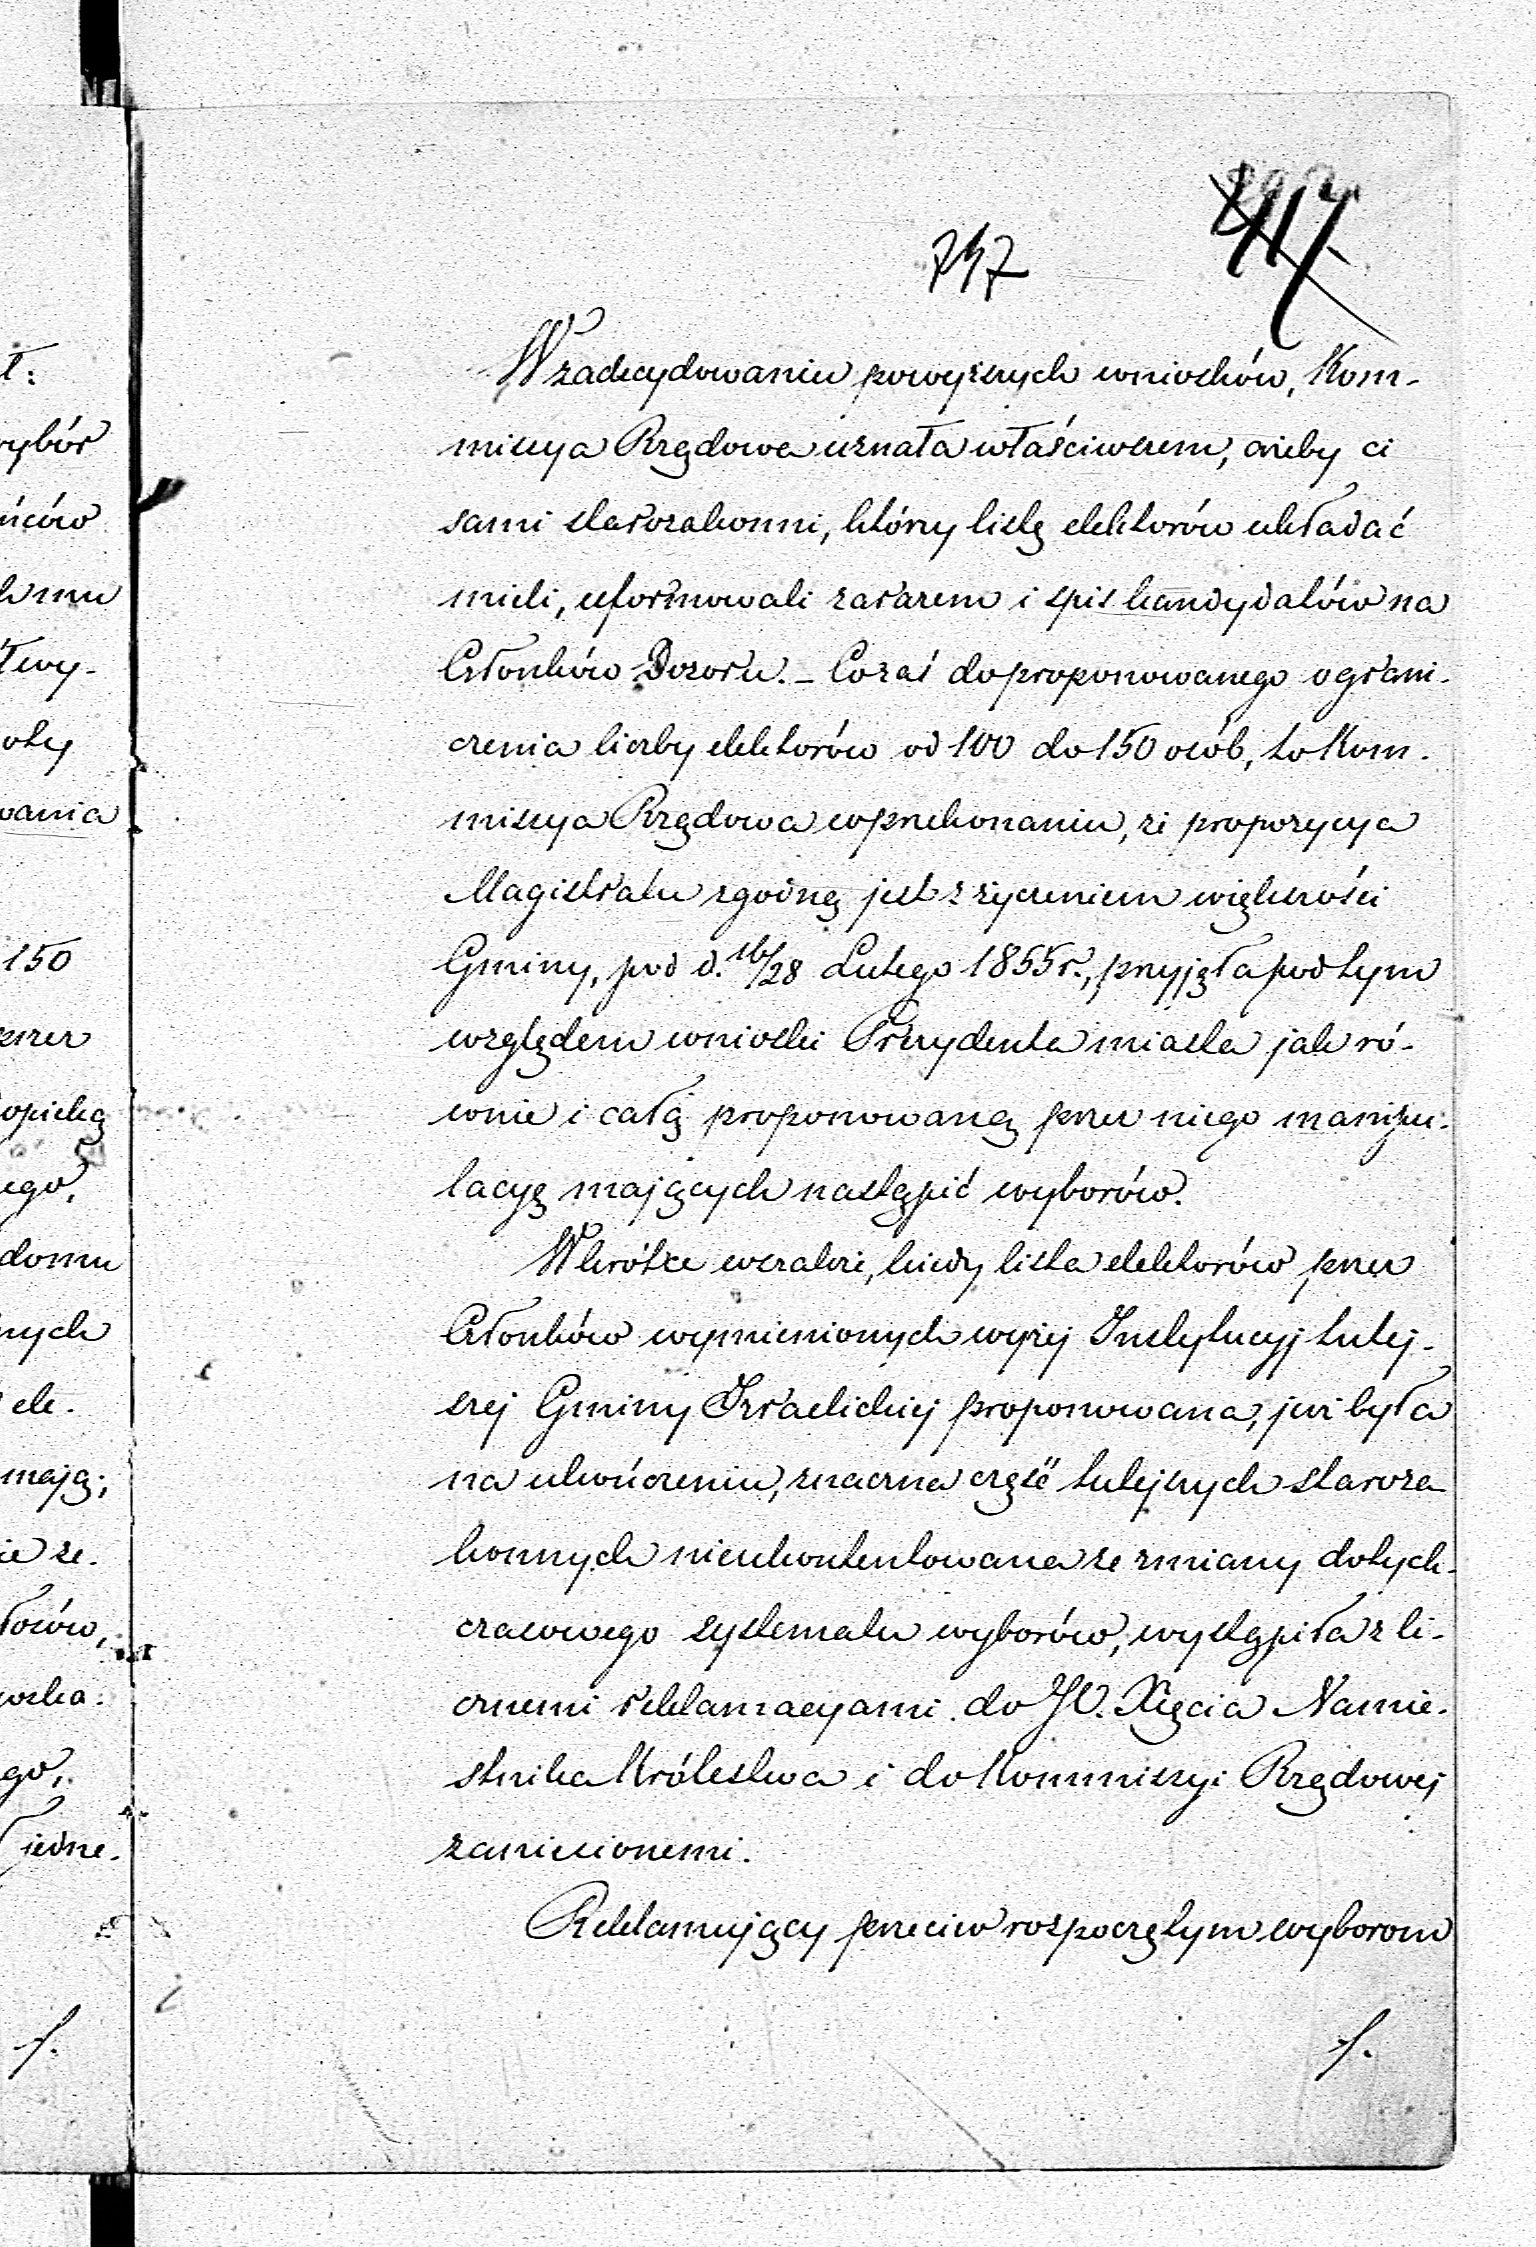 747
417
W zadecydowaniu powyższych wniosków, Kom-
missya Rządowa uznała właściwszem, ażeby ci
sami starozakonni, którzy listę elektorów układać
mieli, uformowali zarazem i spis kandydatów na
Członków Dozoru. – Co zaś do proponowanego ograni-
czenia liczby elektorów od 100 do 150 osób, to Kom-
missya Rządowa w przekonaniu, że propozycya
Magistratu zgodną jest z życzeniem większości
Gminy, pod d. 16/28 Lutego 1855 r., przyjęła pod tym
względem wnioski Prezydenta miasta jak ró-
wnie i całą proponowaną przez niego manipu-
lacyę mających nastąpić wyborów.
Wkrótce wszakże, kiedy lista elektorów przez
Członków wymienionych wyżej Instytucyj tutej-
szej Gminy Izraelickiej proponowana, już była
na ukończeniu, znaczna część tutejszych staroza-
konnych nieukontentowana ze zmiany dotych-
czasowego systematu wyborów, wystąpiła z li-
cznemi reklamacyami do JO. Xięcia Namie-
stnika Królestwa i do Kommissyi Rządowej
zaniesionemi.
Reklamujący przeciw rozpoczętym wyborom